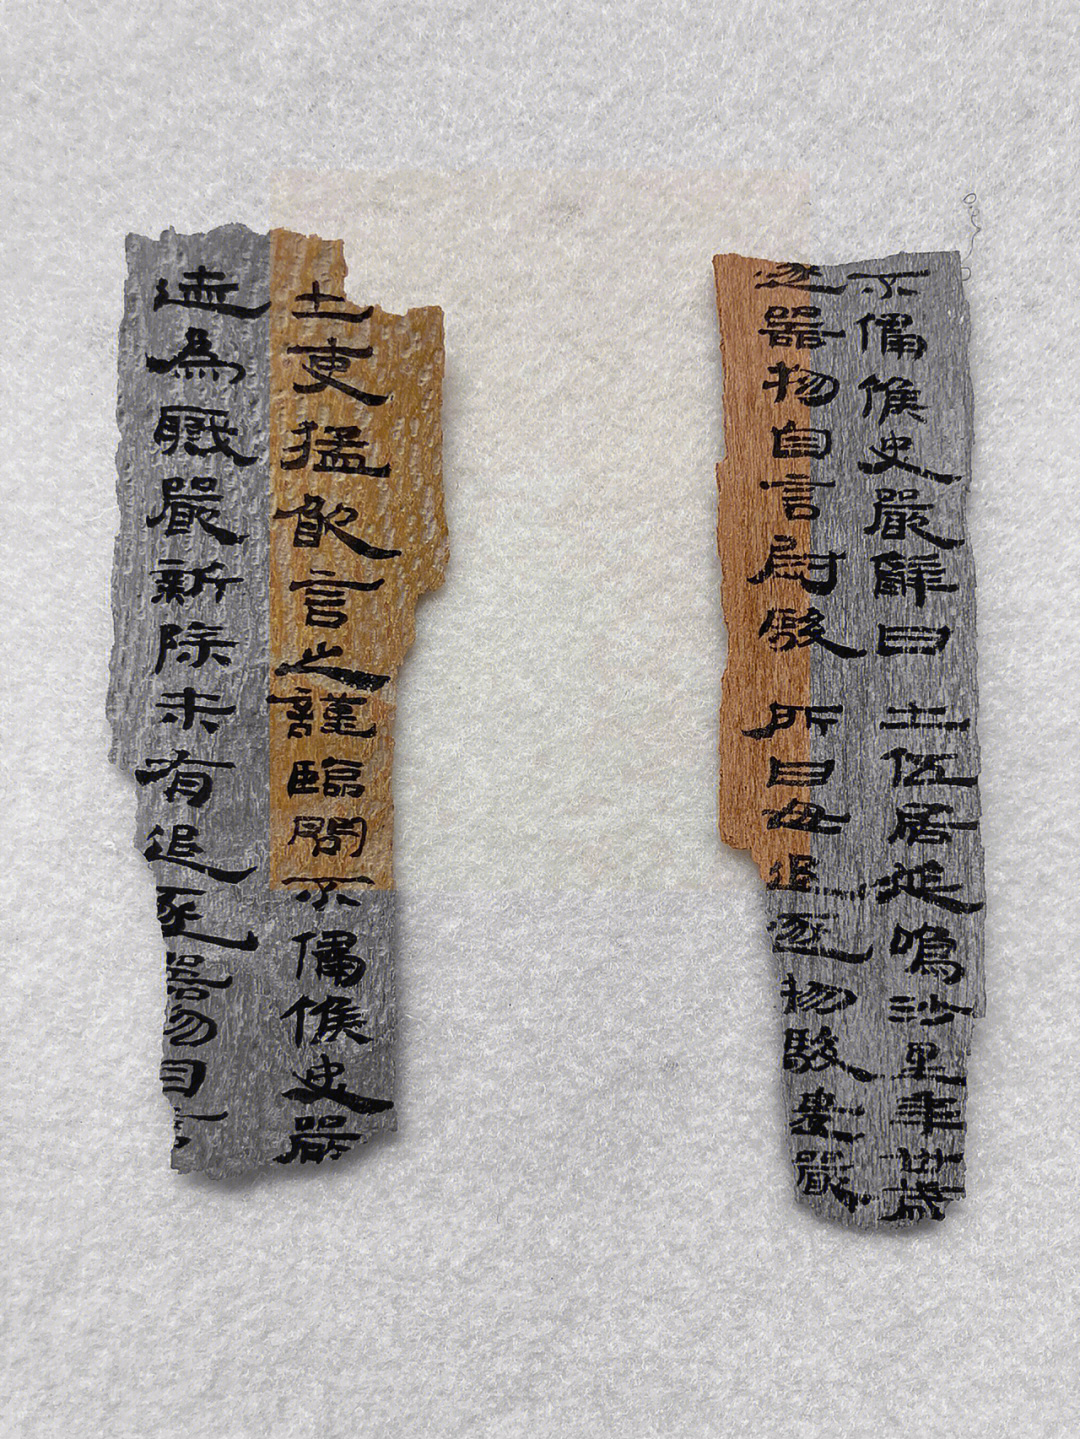 不侵候史嚴辭曰 士伍居延鳴沙里年卅歲
逐器物自言尉駿 所曰毋追逐物駿遣嚴
士吏猛敢言之謹臨問不侵候史嚴
迹為職嚴新除未有追逐器物自言